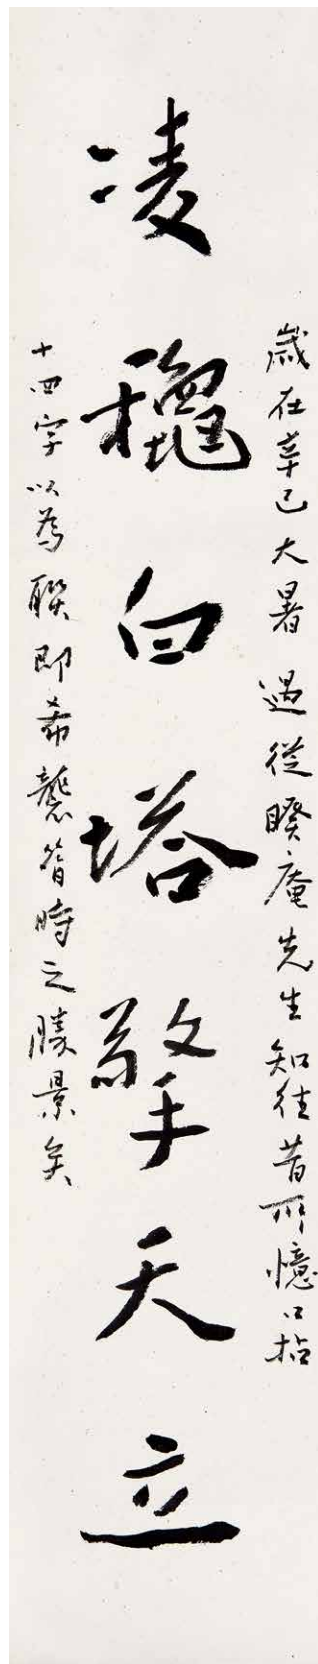 歲在辛巳大暑過從睽庵先生知往昔所憶口拈
凌穐白塔擎天立
十四字以為聯即希襲昔時之勝景矣